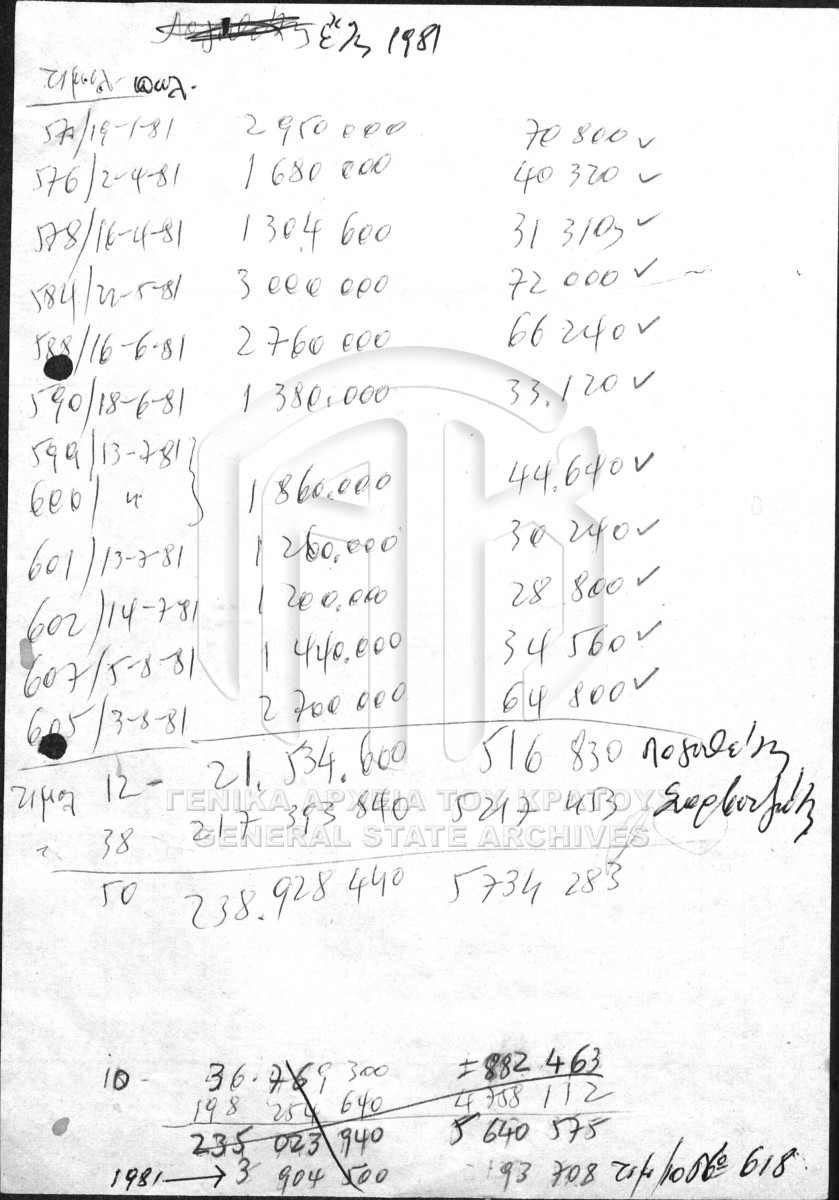 ἔτη 1981
τιμολ. πωλ.
571/19-1-81 2 950 000 70 800 ✓
576/2-4-81 1 680 000 40 320 ✓
578/16-4-81 1 304 600 31 310 ✓
584/22-5-81 3 000 000 72 000 ✓
588/16-6-81 2 760 000 66 240 ✓
590/18-6-81 1 380.000 33.120 ✓
599/13-7-81
600/ " 1 860.000 44.640 ✓
601/13-7-81 1 260.000 30 240 ✓
602/14-7-81 1 200.000 28 800 ✓
607/5-8-81 1 440.000 34 560 ✓
605/3-8-81 2 700 000 64 800 ✓
τιμολ 12 - 21.534.600 516 830
" 38 217 393 840 5217 453
ΓΕΝΙΚΑ ΑΡΧΕΙΑ ΤΟΥ ΚΡΑΤΟΥΣ
GENERAL STATE ARCHIVES
50 238.928 440 5734 283
10 - 36.769 300 882.463
198 254 640 4 758 112
235 023 940 5 640 575
1981 → 3 904 500 93 708 618